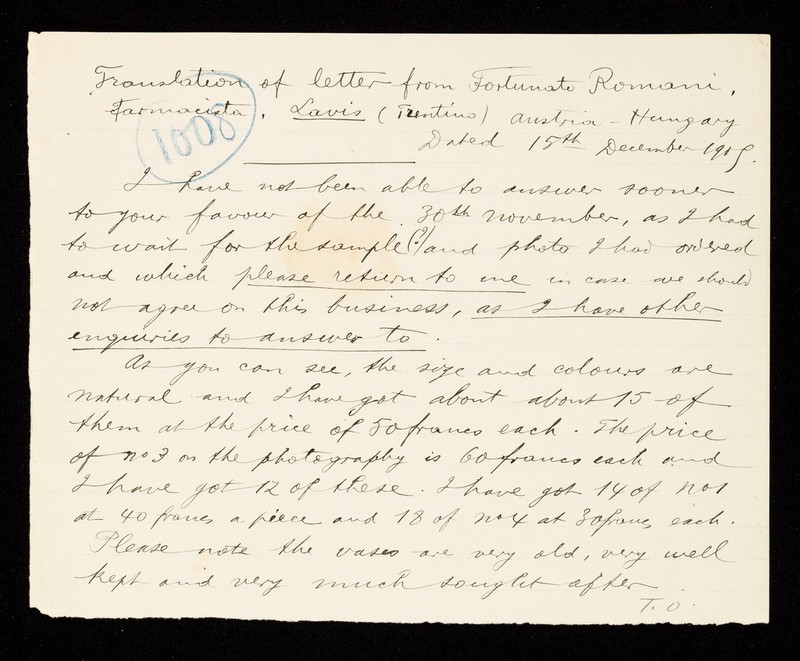 Translation of letter from Fortunato Romani,
Farmacista, Lavis (Trentino) Austria - Hungary
1008
Dated 15th December 1909.
I have not been able to answer sooner
to your favour of the 30th November, as I had
to wait for the sample(?) and photo I had ordered
and which please return to me in case we should
not agree on this business, as I have other
enquiries to answer to.
As you can see, the size and colours are
natural and I have got about about 15 of
them at the price of 50 francs each. The price
of no 3 on the photography is 60 francs each and
I have got 12 of these. I have got 14 of no 1
at 40 francs a piece and 18 of no 4 at 30 francs each.
Please note the vases are very old, very well
kept and very much sought after
T.O.